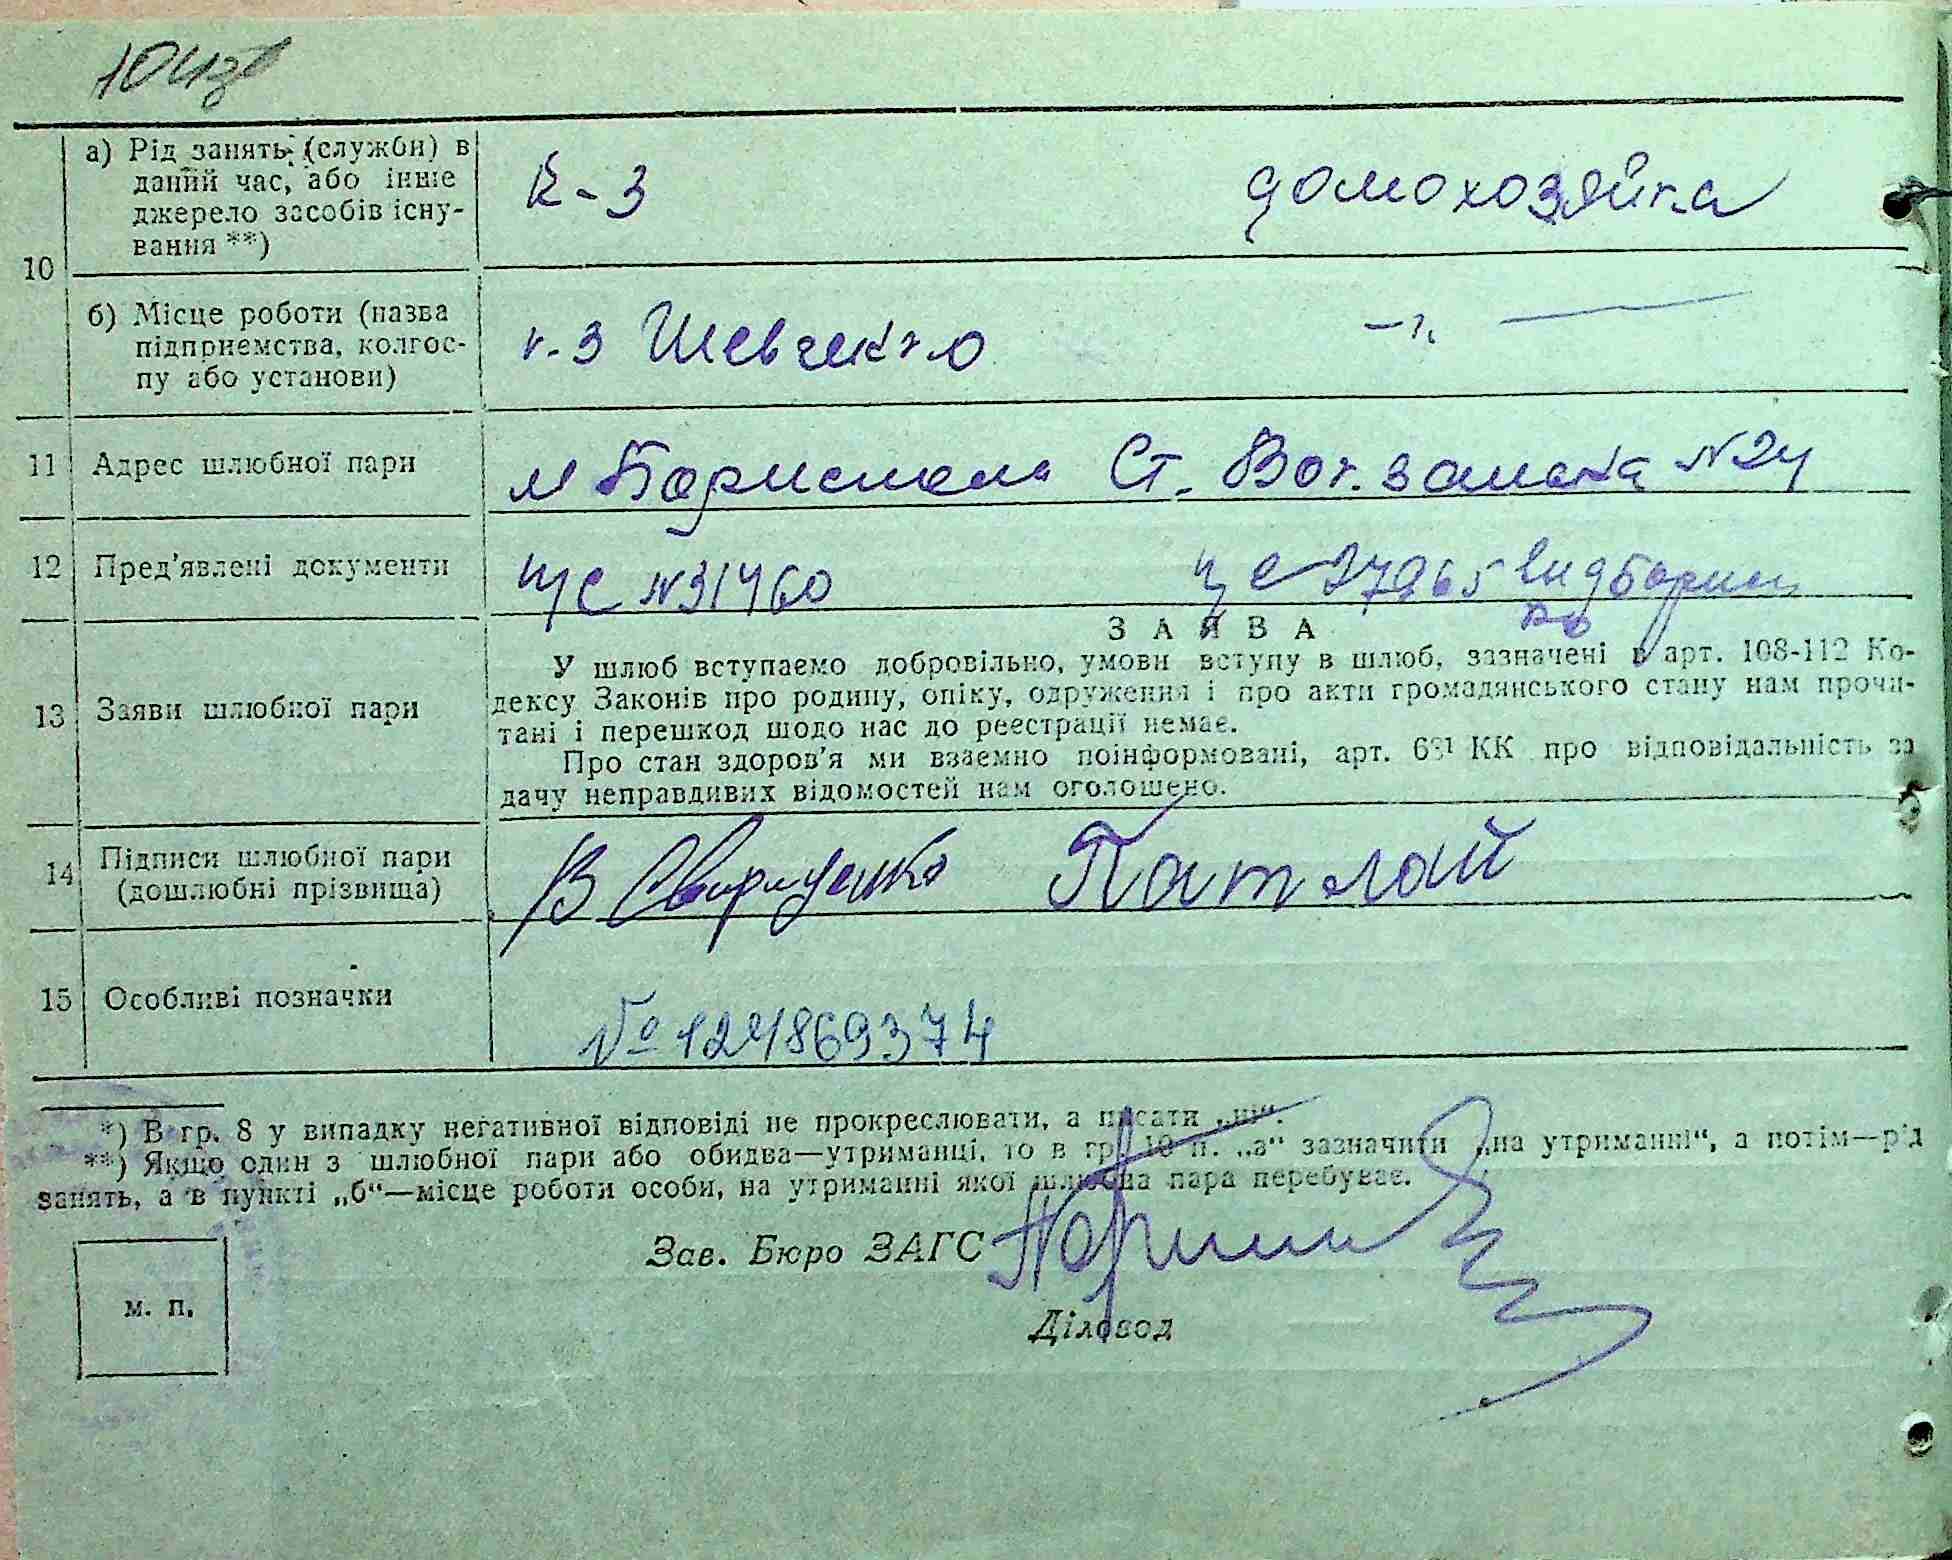 10
а) Рід занять (служби) в
даний час, або інше
джерело засобів існу-
вання **)
к-з
домохозяйка
б) Місце роботи (назва
підприємства, колгос-
пу або установи)
к-з Шевченко
11
Адрес шлюбної пари
м Бориспель Ст. Вокзальна №24
12
Пред'явлені документи
ЧС №31460
ЧС 37965
13
Заяви шлюбної пари
ЗАЯВА
У шлюб вступаємо добровільно, умови вступу в шлюб, зазначені в арт. 108-112 Ко-
дексу Законів про родину, опіку, одруження і про акти громадянського стану нам прочи-
тані і перешкод щодо нас до реєстрації немає.
Про стан здоров'я ми взаємно поінформовані, арт. 68¹ КК про відповідальність за
дачу неправдивих відомостей нам оголошено.
14
Підписи шлюбної пари
(дошлюбні прізвища)
В Свириденко
Патлай
15
Особливі позначки
№ 124869374
*) В гр. 8 у випадку негативної відповіді не прокреслювати, а писати „ні“.
**) Якщо один з шлюбної пари або обидва—утриманці, то в гр. 10 п. „а“ зазначити „на утриманні“, а потім—рід
занять, а в пункті „б“—місце роботи особи, на утриманні якої шлюбна пара перебуває.
Зав. Бюро ЗАГС
м. п.
Діловод